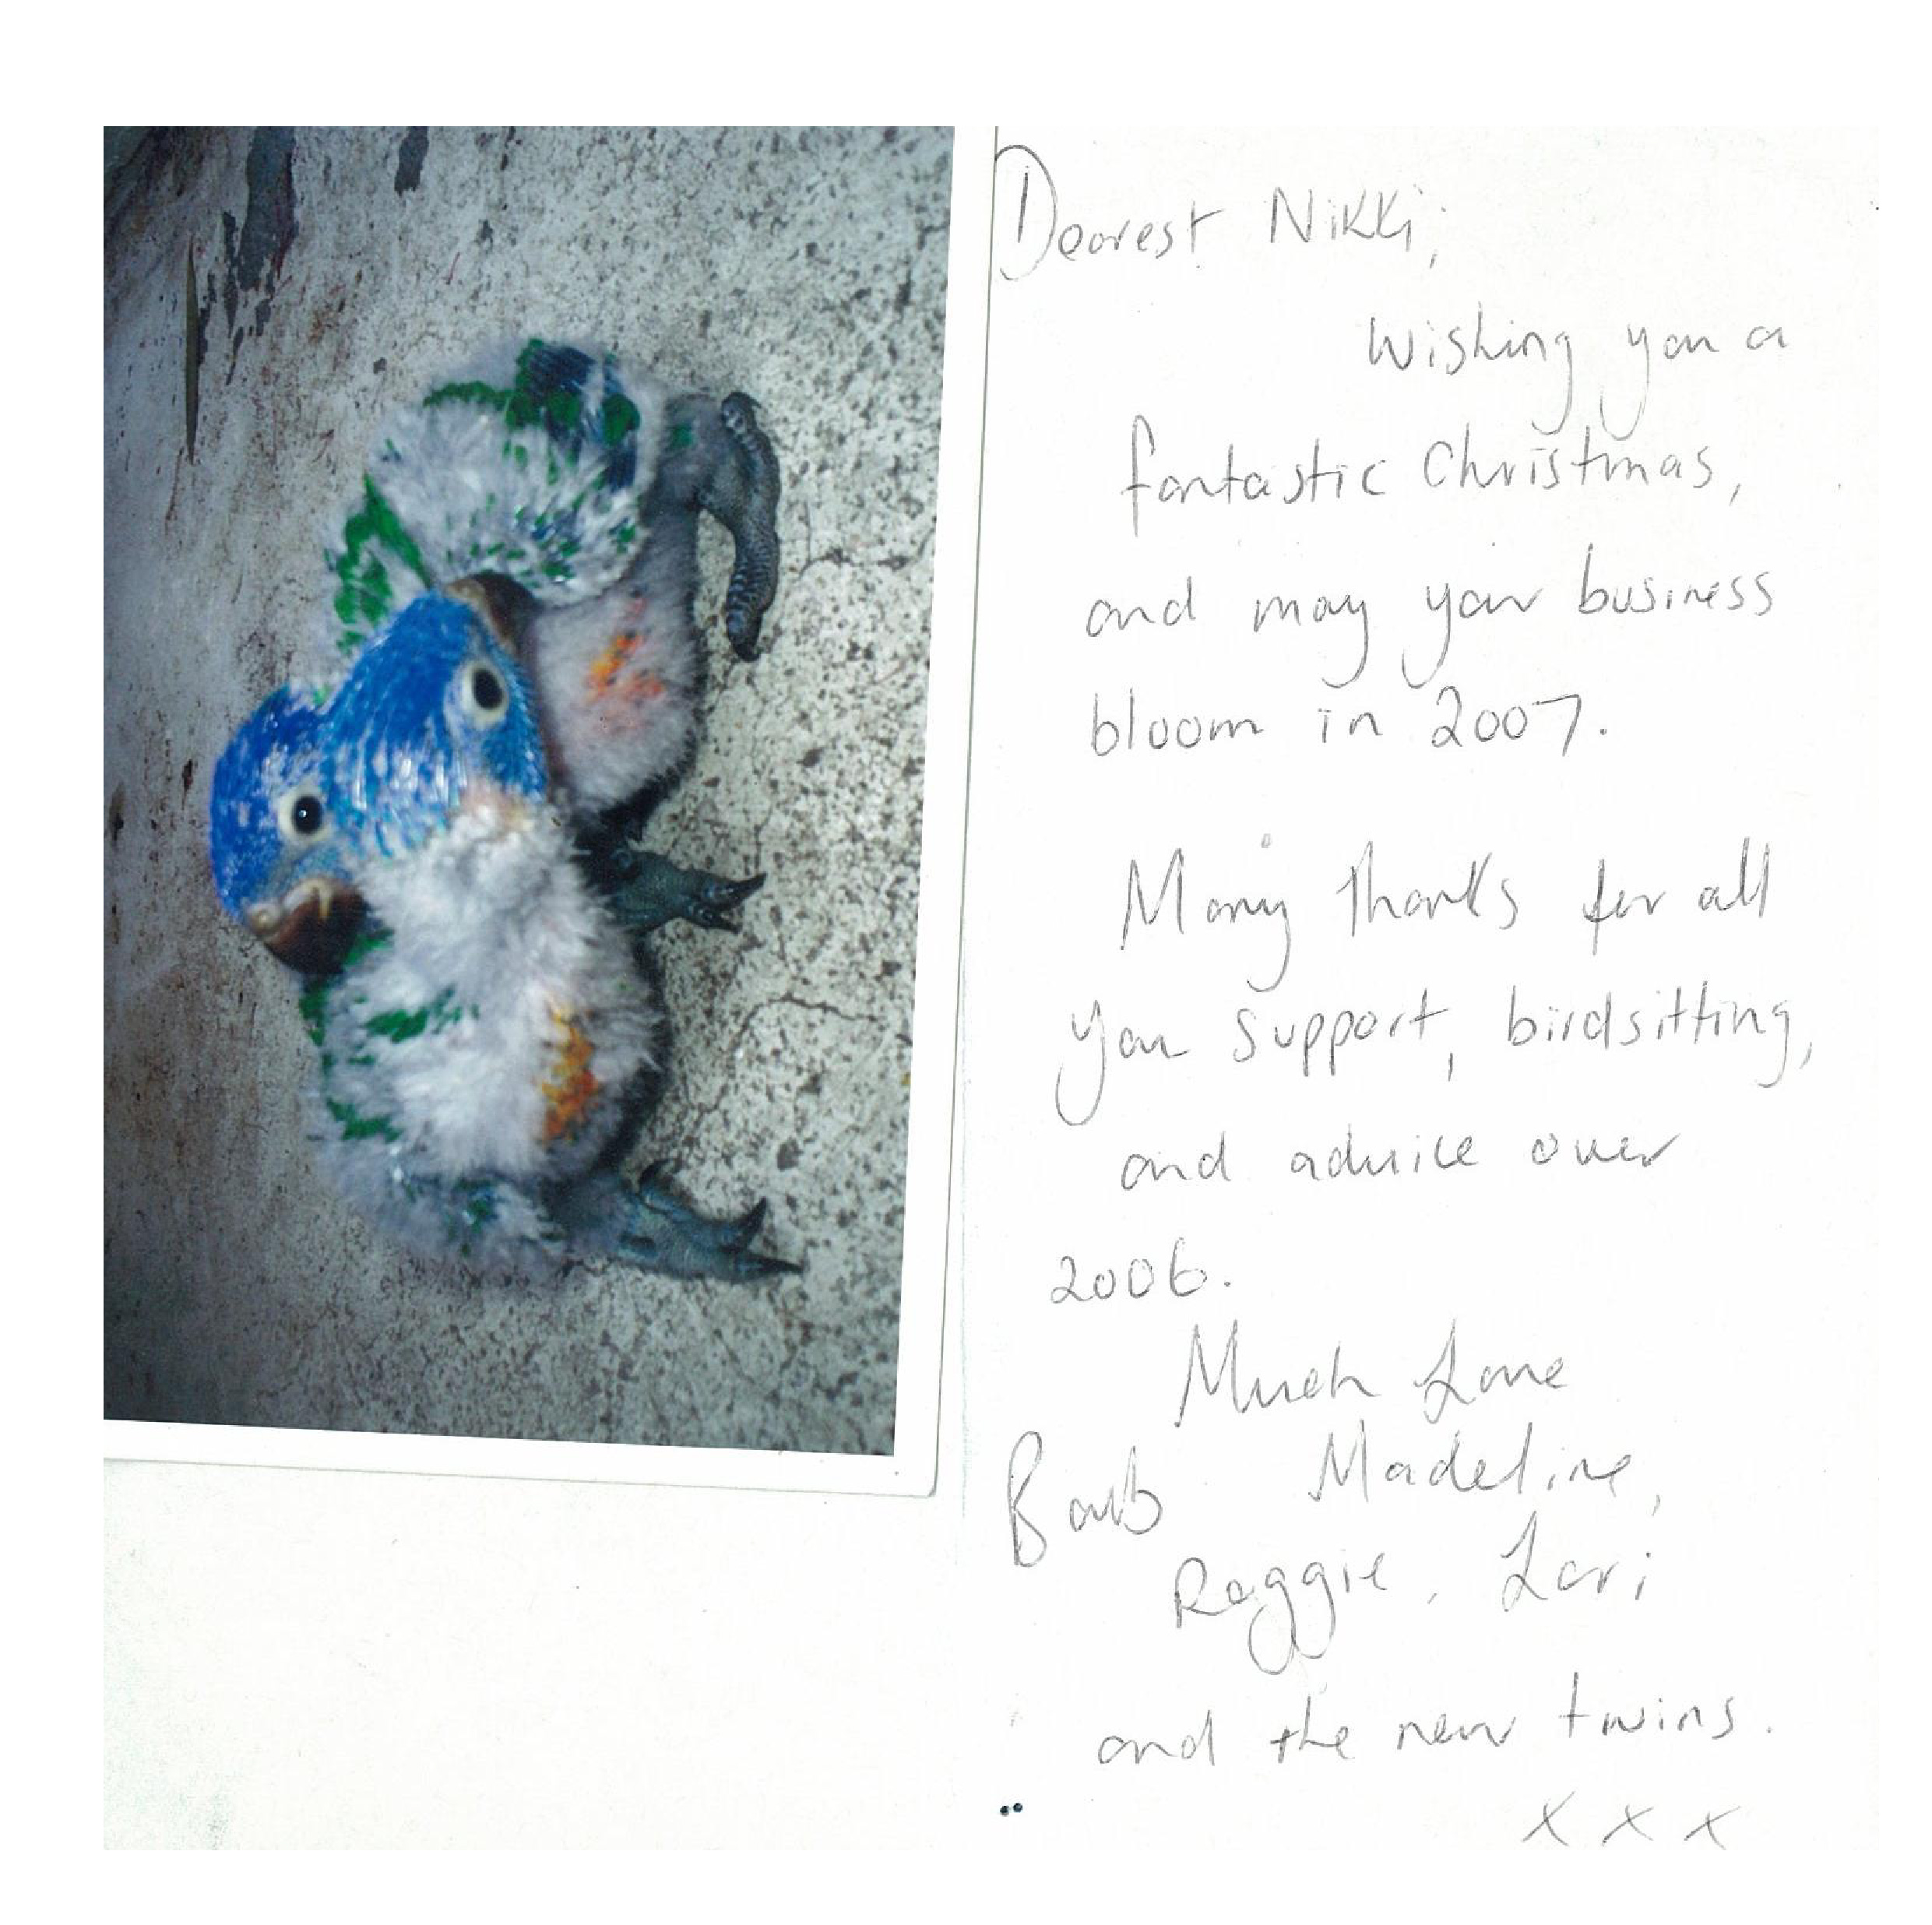 Dearest Nikki,
Wishing you a
fantastic Christmas,
and may your business
bloom in 2007.
Many thanks for all
you support, birdsitting,
and advice over
2006.
Much Love
Barb Madeline,
Reggie, Lori
and the new twins.
x x x